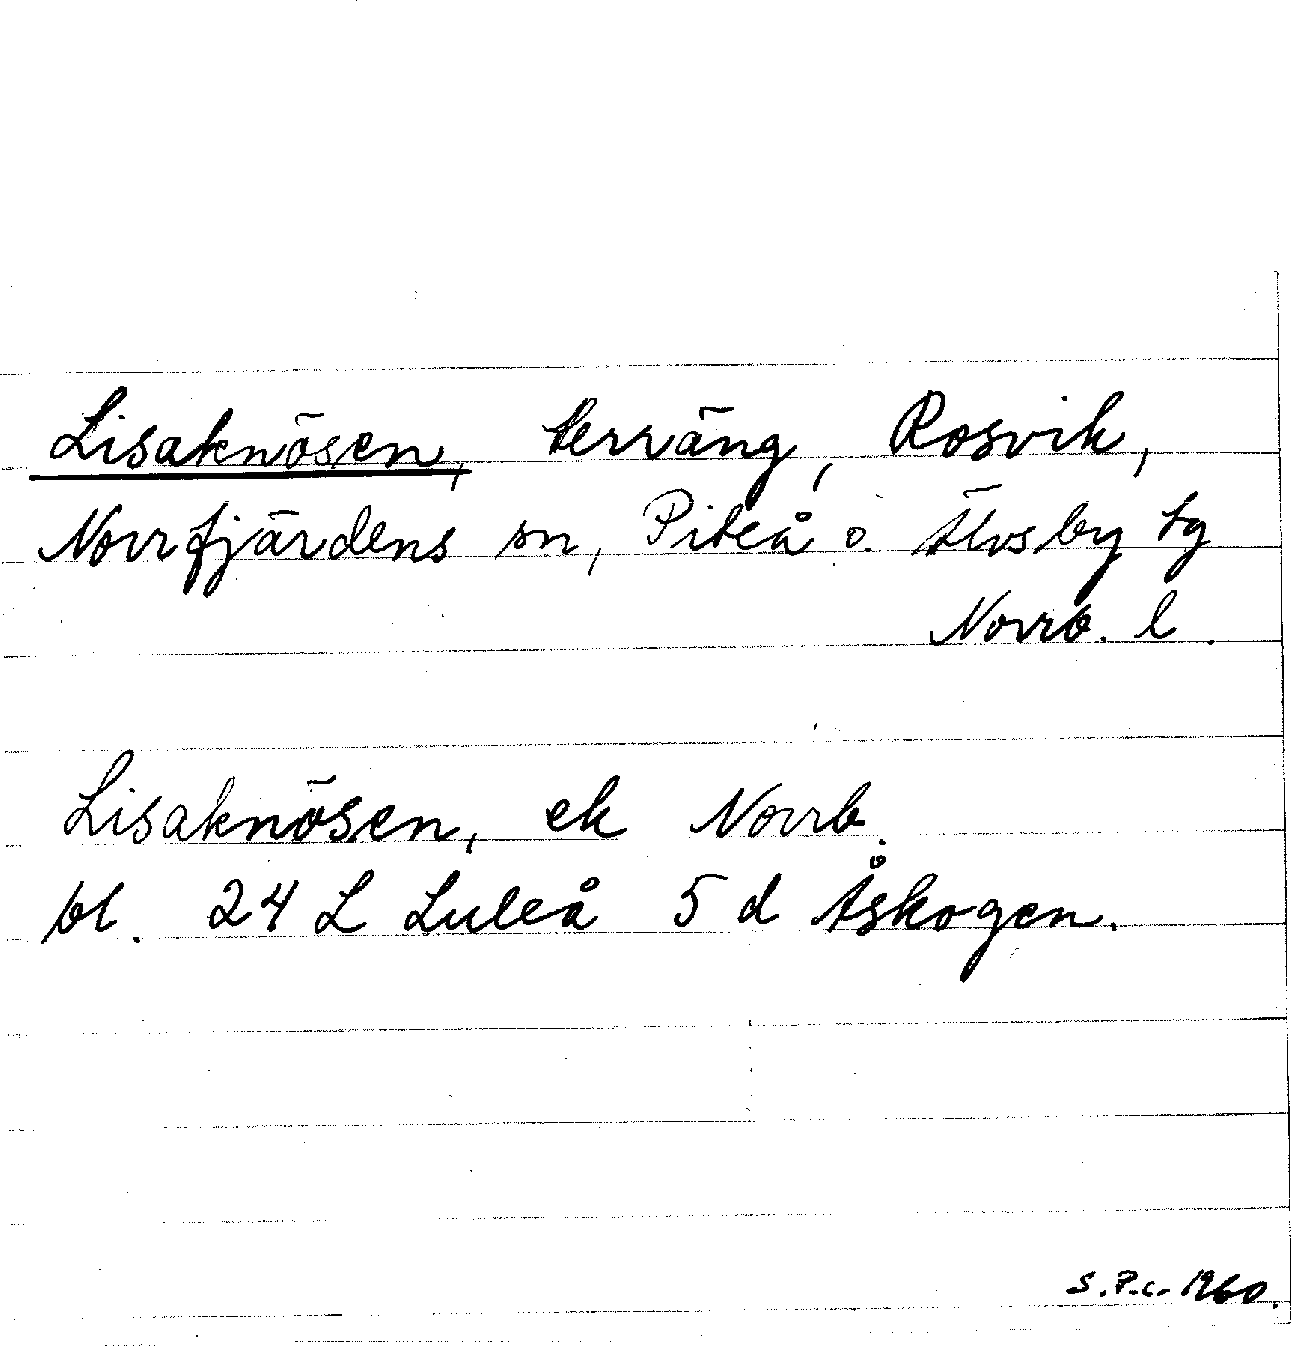 Lisaknösen, terräng, Rosvik,
Norrfjärdens sn, Piteå o. Älvsby tg
Norrb. l.
Lisaknösen, ek Norrb.
bl. 24 L Luleå 5 d Åskogen.
S.P.C. 1960.